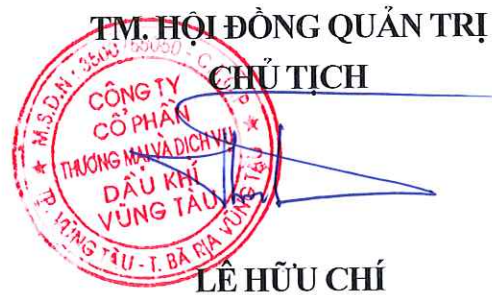 TM. HỘI ĐỒNG QUẢN TRỊ
CHỦ TỊCH
CÔNG TY
CỔ PHẦN
THƯƠNG MẠI VÀ DỊCH VỤ
DẦU KHÍ
VŨNG TÀU
M.S.D.N
TP. VŨNG TÀU - T. BÀ RỊA VŨNG TÀU
LÊ HỮU CHÍ